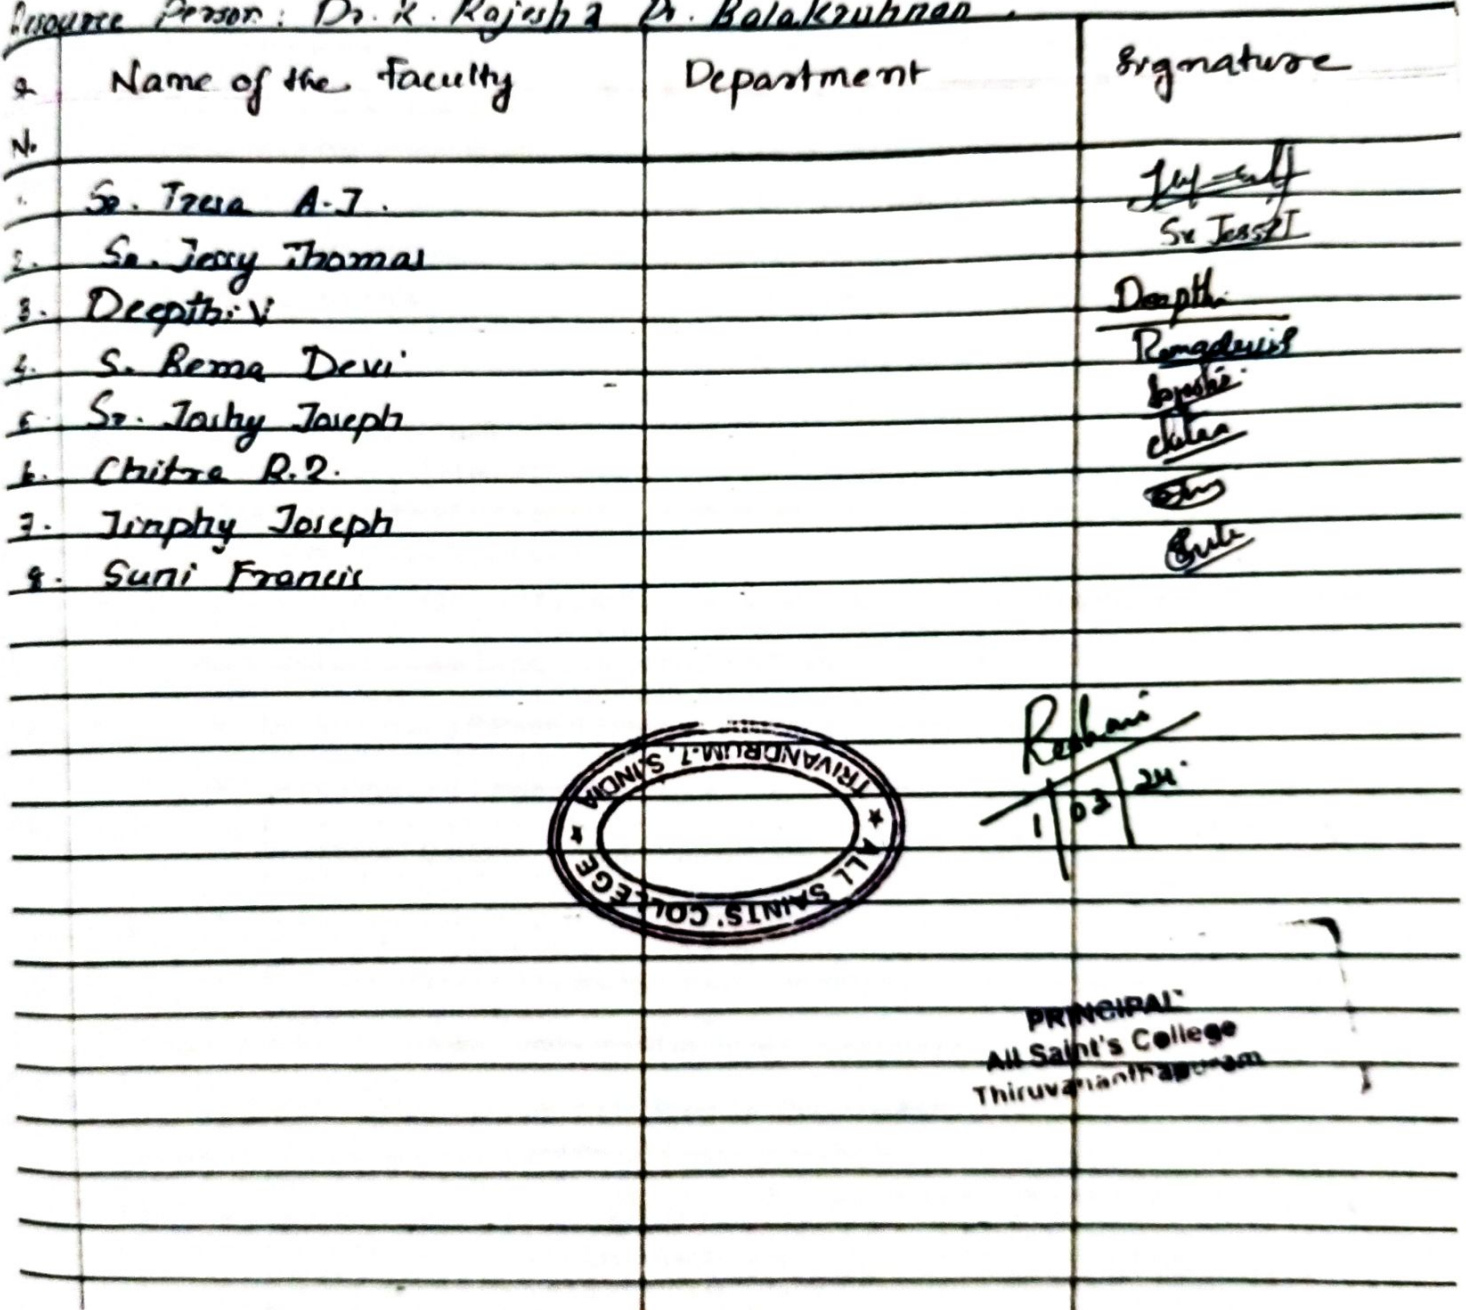 Resource Person: Dr. K. Rajesh & Dr. Balakrishnan.
Name of the Faculty Department Signature
N.
1. Sr. Tresa A.J.
2. Sr. Jessy Thomas Sr Jessy T
3. Deepthi V Deepthi
4. S. Rema Devi Remadevi S
5. Sr. Joshy Joseph
6. Chitra R.R. Chitra
7. Jinphy Joseph
8. Suni Francis Suni
1/03/24
TRIVANDRUM-7, S.INDIA
★ ALL SAINTS' COLLEGE ★
PRINCIPAL
All Saint's College
Thiruvananthapuram